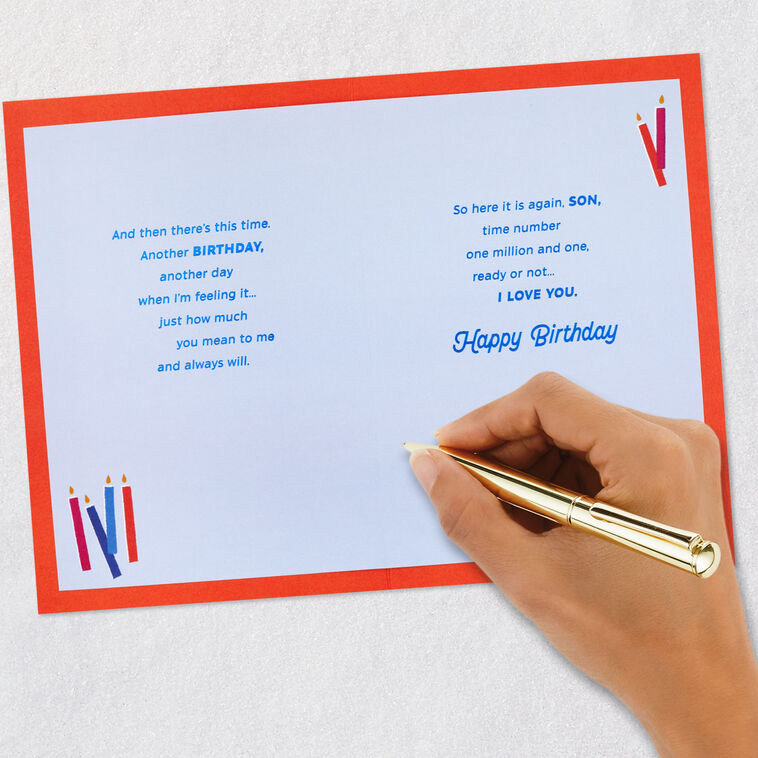 And then there's this time.
Another BIRTHDAY,
another day
when I'm feeling it...
just how much
you mean to me
and always will.
So here it is again, SON,
time number
one million and one,
ready or not...
I LOVE YOU.
Happy Birthday